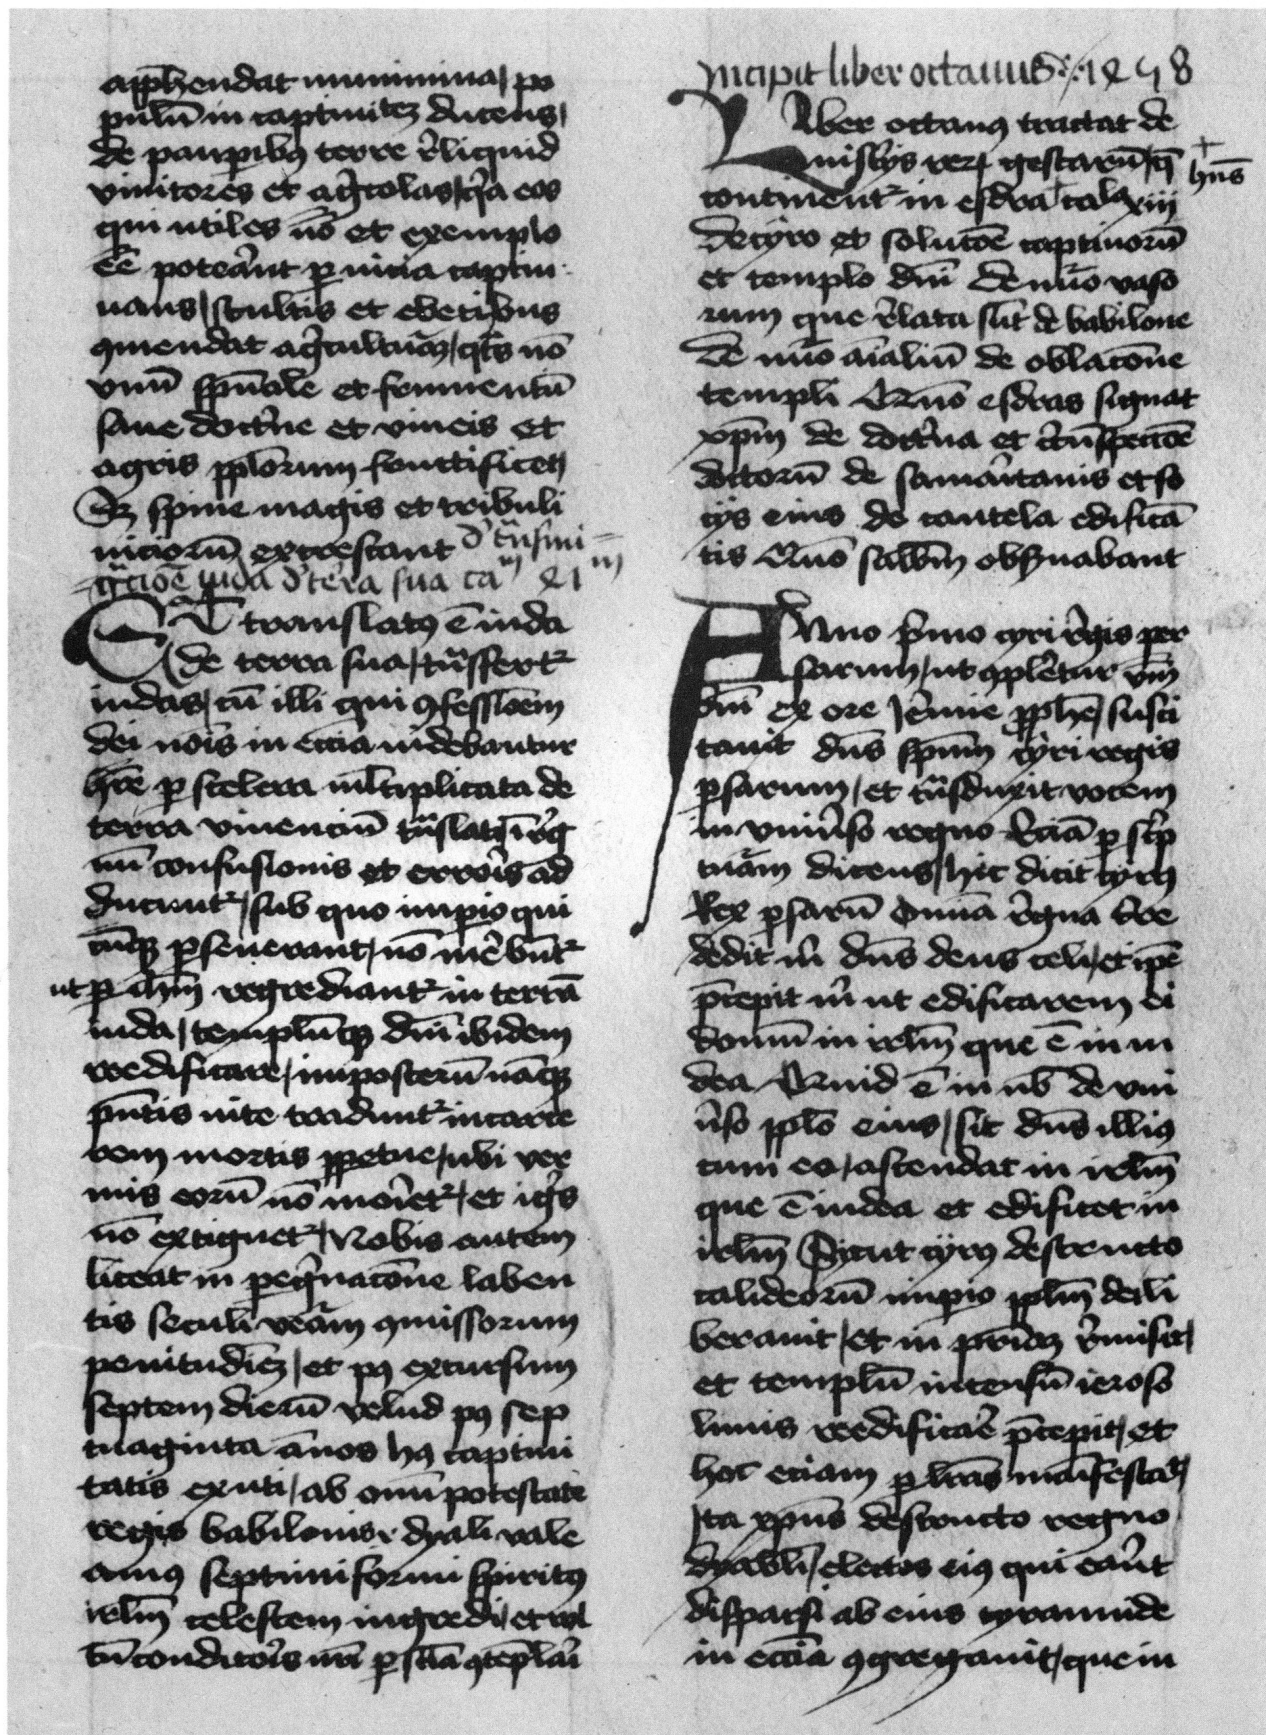 apphendat munimina / po
pulū in captiuitatē ducens /
de paupibꝯ terre r̄liquid
vinitores et ag̃colas / q̃a eos
qui utiles nō et exemplo
eē poterānt p uicia captiu
uans / stultis et ebetibus
ꝯmendat ag̃cultur̄a / nō
vinū spūale et frumentū
sane doctͥne et vineis et
agris pplorum fructificet
Sʒ spine magis et tribuli
uicioru excrescant d' t̄nsmi=
=g̃cioē iuda d' terra sua ca
Et translatꝯ ē iuda
de terra sua / t̄nsfert᷑
iudas / cū illi qui ꝯfessioēm
dei nois in eccīa uidebantur
hr̄e p scelera mltiplicata de
terra viuenciū t̄nslati reg
nū confusionis et erroris ad
ducunt᷑ / sub quo impio qui
cūqʒ pseuerant / nō merebūt᷑
ut p ihm̄ regrediant᷑ in terrā
iuda / templūqʒ dn̄i ibidem
reedificare / imposterū nāqʒ
pn̄tis uite tradunt᷑ in carce
rem mortis ppetue / ubi ver
mis eorū nō moriet᷑ / et ignis
nō extiguet᷑ / Nobis autem
liceat in peg̃nacōne laben
tis seculi veniā ꝯmissorum
penitudinē / et pꝯ excursum
septem dierū velud pꝯ sep
tuaginta annos hꝯ captiui
tatis exuti / ab omī potestate
regis babilonis dyaboli vale
amus septimiformi spiritꝯ
irlm̄ celestem ingredi / et wl
tū conditoris nr̄i p scīā ꝯtēplari
Incipit liber octauus 1458
Liber octauꝯ tractat de
misterijs rerū gestarū / q̄
hn̄s
continent᷑ in esdra cala xiii
de cyro et solucōe captiuorū
et templo dn̄i de nūo vaso
rum que r̄lata sūt de babilone
de nūo aīaliū de oblacōne
templi Quō esdras signat
xpm̄ de doctͥna et circūspectōe
doctorū de samaritanis et so
cijs eius de cautela edificā
tis Quō sabbm̄ obseruabant
Anno p̄mo cyri r̄gis per
sarum / ut ꝯpletur vm̄
dn̄i ex ore Jeremie pphē / susci
tauit dn̄s spm̄ cyri regis
psarum / et t̄nsduxit vocem
in vniuerso regno eciā p scrip
turam dicens / hic dicit cyrꝯ
Rex psarū Omnia r̄gna terre
dedit m̄ dn̄s deus celi / et ipē
p̄cepit m̄ ut edificarem ei
domū in irlm̄ que ē in iu
dea Quid ē in uob de vni
uerso pplo eius / sit dn̄s illiꝯ
cum eo / ascendat in irlm̄
que ē iudea et edificet in
irlm̄ Sicut cyrꝯ destructo
caldeorū impio pplm̄ dei li
berauit / et in pr̄iaʒ r̄misit /
et templū incensū ieroso
limis reedificare p̄cepit / et
hoc eciam p lr̄as manifestat /
Ita xpus destructo regno
dyaboli / electos eiꝯ qui erant
disparsi ab eius tyrannide
in eccīa ꝯgregauit / que in